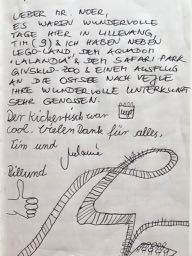 LIEBER MR. NOER,
ES WAREN WUNDERVOLLE
TAGE HIER IN LILLEVANG,
TIM (9) & ICH HABEN NEBEN
LEGO-LAND, DEM AQUADOM
"LALANDIA" & DEM SAFARI PARK
GIVSKUD-ZOO & EINEM AUSFLUG
AN DIE OSTSEE NACH VEJLE
IHRE WUNDERVOLLE UNTERKUNFT
SEHR GENOSSEN.
Der Kickertisch war
cool. Vielen Dank für alles,
Lego
Tim und
Billund